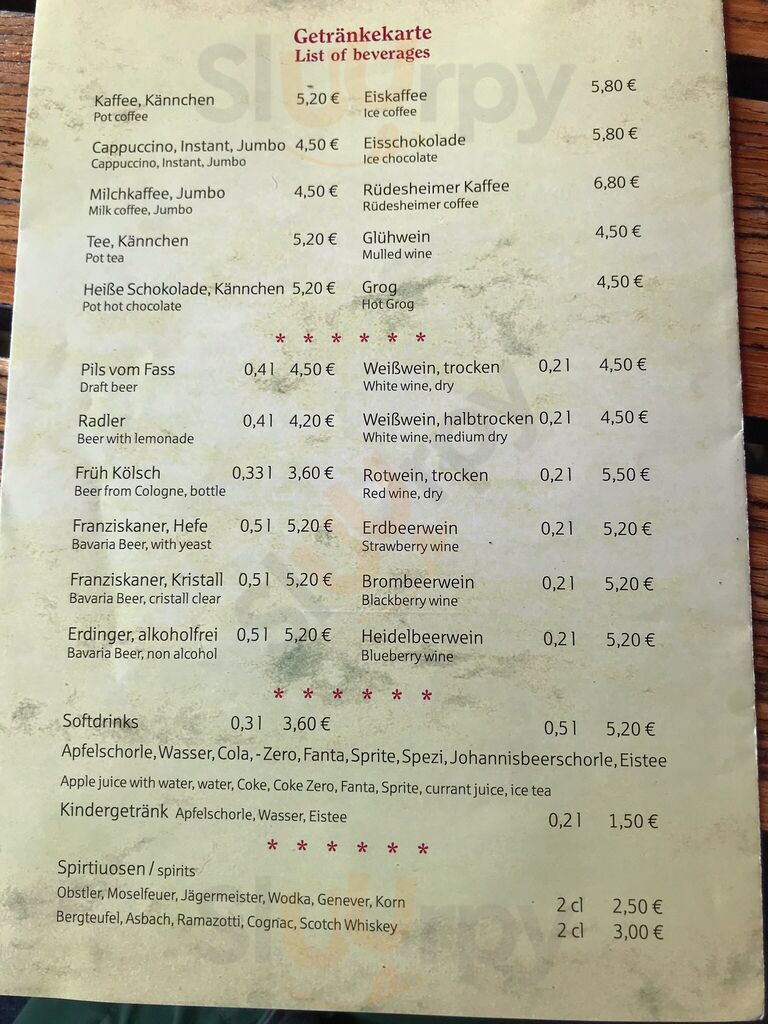 Getränkekarte
List of beverages
Kaffee, Kännchen 5,20 €
Pot coffee
Cappuccino, Instant, Jumbo 4,50 €
Cappuccino, Instant, Jumbo
Milchkaffee, Jumbo 4,50 €
Milk coffee, Jumbo
Tee, Kännchen 5,20 €
Pot tea
Heiße Schokolade, Kännchen 5,20 €
Pot hot chocolate
Eiskaffee 5,80 €
Ice coffee
Eisschokolade 5,80 €
Ice chocolate
Rüdesheimer Kaffee 6,80 €
Rüdesheimer coffee
Glühwein 4,50 €
Mulled wine
Grog 4,50 €
Hot Grog
* * * * * *
Pils vom Fass 0,4 l 4,50 €
Draft beer
Radler 0,4 l 4,20 €
Beer with lemonade
Früh Kölsch 0,33 l 3,60 €
Beer from Cologne, bottle
Franziskaner, Hefe 0,5 l 5,20 €
Bavaria Beer, with yeast
Franziskaner, Kristall 0,5 l 5,20 €
Bavaria Beer, cristall clear
Erdinger, alkoholfrei 0,5 l 5,20 €
Bavaria Beer, non alcohol
Weißwein, trocken 0,2 l 4,50 €
White wine, dry
Weißwein, halbtrocken 0,2 l 4,50 €
White wine, medium dry
Rotwein, trocken 0,2 l 5,50 €
Red wine, dry
Erdbeerwein 0,2 l 5,20 €
Strawberry wine
Brombeerwein 0,2 l 5,20 €
Blackberry wine
Heidelbeerwein 0,2 l 5,20 €
Blueberry wine
* * * * * *
Softdrinks 0,3 l 3,60 € 0,5 l 5,20 €
Apfelschorle, Wasser, Cola, - Zero, Fanta, Sprite, Spezi, Johannisbeerschorle, Eistee
Apple juice with water, water, Coke, Coke Zero, Fanta, Sprite, currant juice, ice tea
Kindergetränk Apfelschorle, Wasser, Eistee 0,2 l 1,50 €
* * * * * *
Spirtiuosen / spirits
Obstler, Moselfeuer, Jägermeister, Wodka, Genever, Korn 2 cl 2,50 €
Bergteufel, Asbach, Ramazotti, Cognac, Scotch Whiskey 2 cl 3,00 €
Sluurpy
Sluurpy
Sluurpy